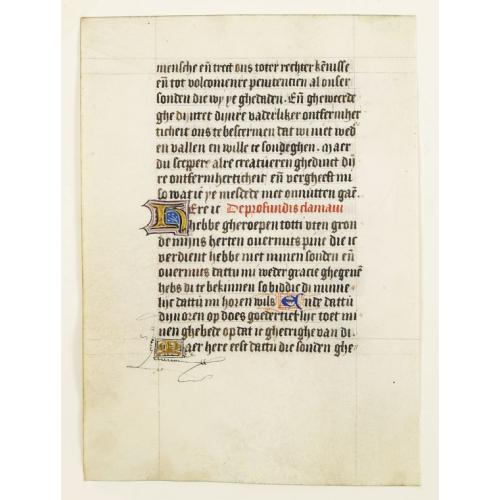 mensche eñ trect ons toter rechter kēnisse
eñ tot volcomenre penitencien al onser
sonden die wy ye ghedadē. Eñ gheweerde
ghe di vtret dijnre vaderliker ontfermher
ticheit ons te bescermen dat wi niet wed
en vallen in wille te sondeghen. Maer
du sceppere alre creatueren ghedinct dij
re ontfermherticheit eñ vergheeft mi
so wat ic ye mesdede met onnutten gaē.
Here ic De profundis clamaui
hebbe gheroepen tot ti vten gron
de mijns herten ouermits pine die ic
verdient hebbe met minen sonden eñ
ouermits dattu mi weder gracie ghegeuē
hebs di te bekinnen so biddic di minne
lijc dattu mi horen wils Ende dattu
dijn oren op does goedertierlijc toet mi
nen ghebede op dat ic ghetrighe van di.
Maer here eest dattu die sonden ghe